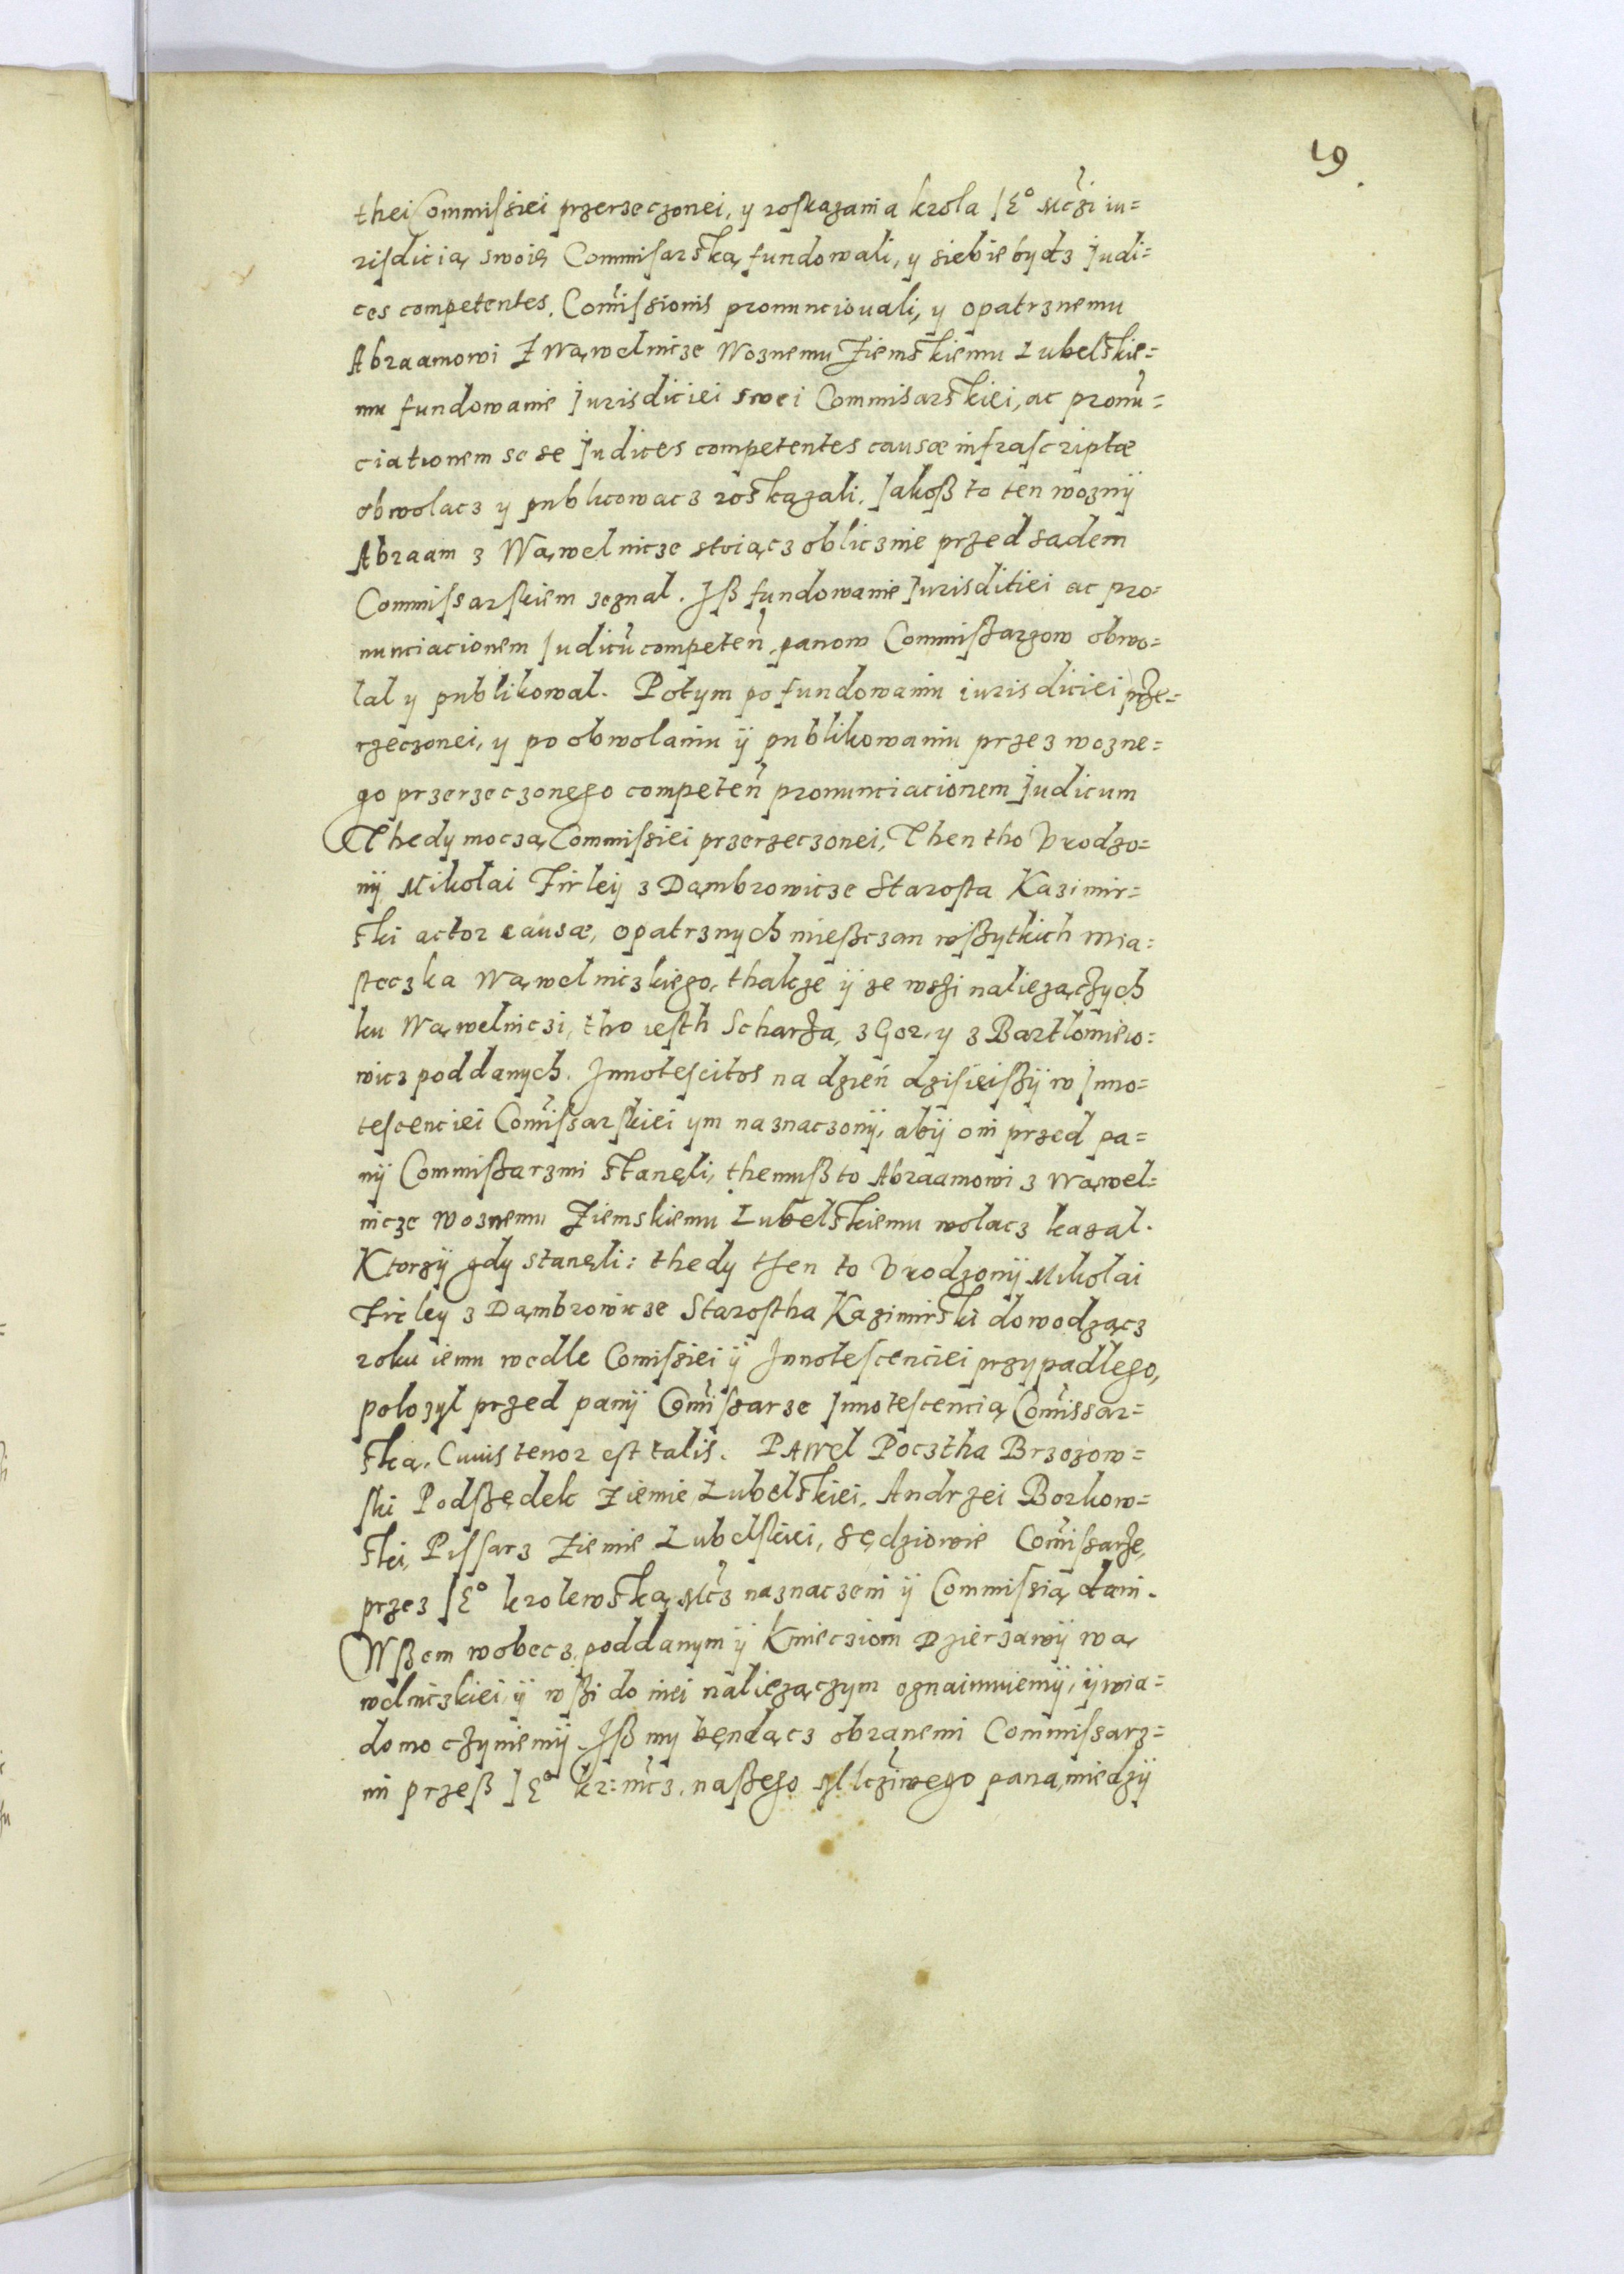 19
thei Commiſsiei przerzeczonei, y roſkazania krola JE° Mczi iu=
riſdicią swoię Commiſarską fundowali, y siebie bydz Judi=
ces competentes. Com̃iſsionis pronunciouali, y opatrznemu
Abraamowi Z Wąwelnicze Woznemu Ziemskiemu Lubelskie=
mu fundowanie Jurisdiciei swei Commisarskiei, ac pronũ=
ciationem se se Judices competentes causæ infraſcriptæ
obwolacz y publicowacz roskazali. Jakoß to ten woznÿ
Abraam z Wąwelnicze stoiącz oblicznie przed sadem
Commiſsarſkiem zeznal. Jß fundowanie Jurisditiei ac pro=
nunciacionem Judicũ competeñ. panow Commißarzow obwo=
lal y publikowal. Potym po fundowaniu iurisdiciei prze=
rzeczonei, y po obwolaniu ÿ publikowaniu przez wozne=
go przerzeczonego competeñ pronunciacionem Judicum
Thedy moczą Commiſsiei przerzeczonei, Then tho Vrodzo=
nÿ Mikolai Firleÿ z Dąmbrowicze Staroſta Kazimir=
ski actor causæ, opatrznych mießczan wßytkich mia=
ſteczka Wąwelniczkiego, thakze ÿ ze wszi naliezączych
ku Wąwelniczi, tho ieſth Scharza, z Gor, y z Bartlomieio=
wicz poddanych. Jnnoteſcitos na dzień dzisieißÿ w Jnno=
teſcenciei Com̃iſsarſkiei ym naznaczonÿ, abÿ oni przed pa=
nÿ Commißarzmi stanęli, themuß to Abraamowi z Wąwel=
nicze Woznemu Ziemskiemu Lubelskiemu wolacz kazal.
Ktorzÿ gdy stanęli: thedy then to Vrodzonÿ Mikolai
Firley z Dąmbrowicze Staroſtha Kazimirski dowodzącz
roku iemu wedle Comiſsiei ÿ Jnnoteſcenciei przypadlego,
polozyl przed panÿ Com̃iſsarze Jnnoteſcencią Com̃issar=
ską. Cuuis tenor eſt talis. PAWel Pocztha Brzozow=
ſki Podßędek Ziemie Lubelskiei, Andrzei Borkow=
ski, Piſsarz Ziemie Lubelſkiei, sędziowie Com̃iſsarze,
przez JE° krolewską Mcz naznaczeni ÿ Commiſsią dani.
Wßem wobecz poddanym ÿ Kmiecziom Dzierzawÿ Wą
welniczkiei ÿ wßi do niei naliezączym oznaimuiemÿ, ÿ wia=
domo czyniemÿ. Jß my będącz obranemi Commiſsarz=
mi przeß JE° kr: mcz, naßego Mlcziwego pana, miedzÿ